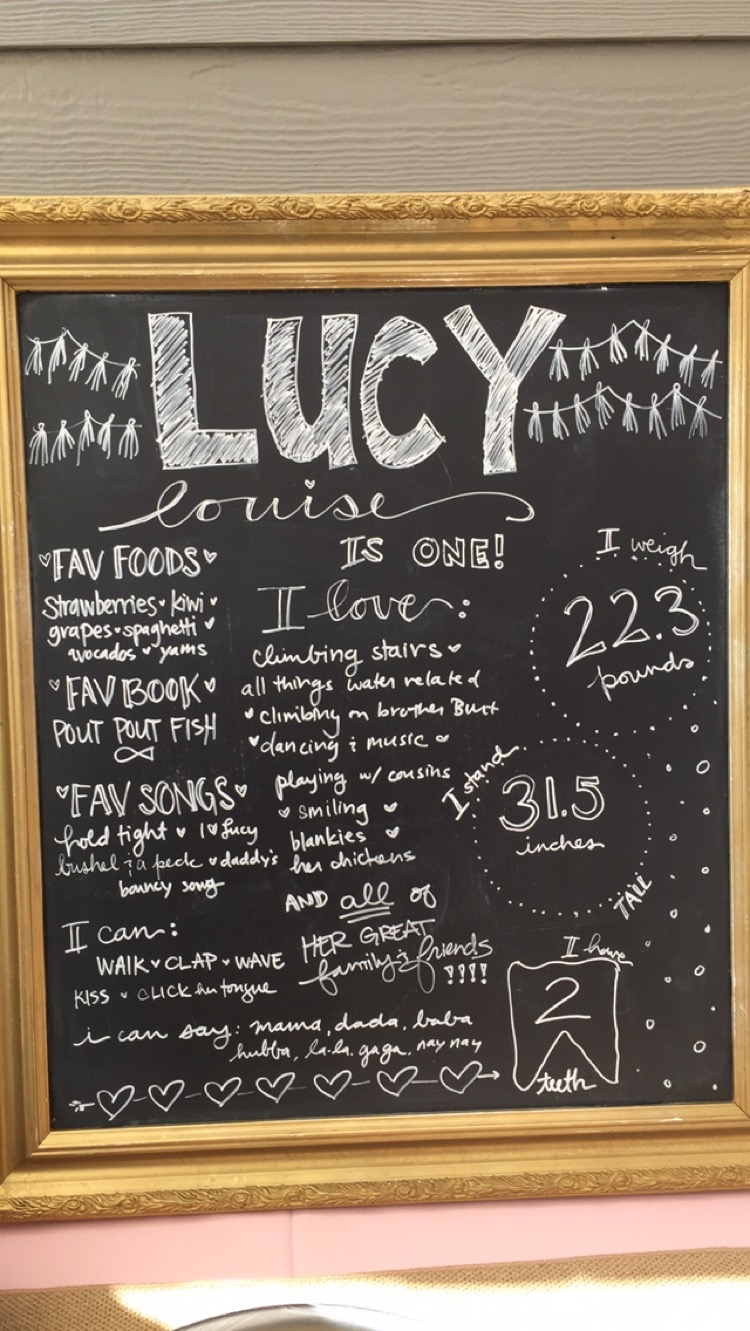 LUCY
louise
IS ONE!
FAV FOODS
Strawberries kiwi
grapes spaghetti
avocados yams
FAV BOOK
POUT POUT FISH
FAV SONGS
hold tight I lucy
bushel & a peck daddy's
bouncy song
I can:
WALK CLAP WAVE
KISS CLICK her tongue
i can say: mama, dada, baba
hubba, la-la, gaga, nay nay
I love:
climbing stairs
all things water related
climbing on brother Burt
dancing & music
playing w/ cousins
smiling
blankies
her chickens
AND all of
HER GREAT
family & friends
!!!!
I weigh
22.3
pounds
I stand
31.5
inches
TALL
I have
2
teeth